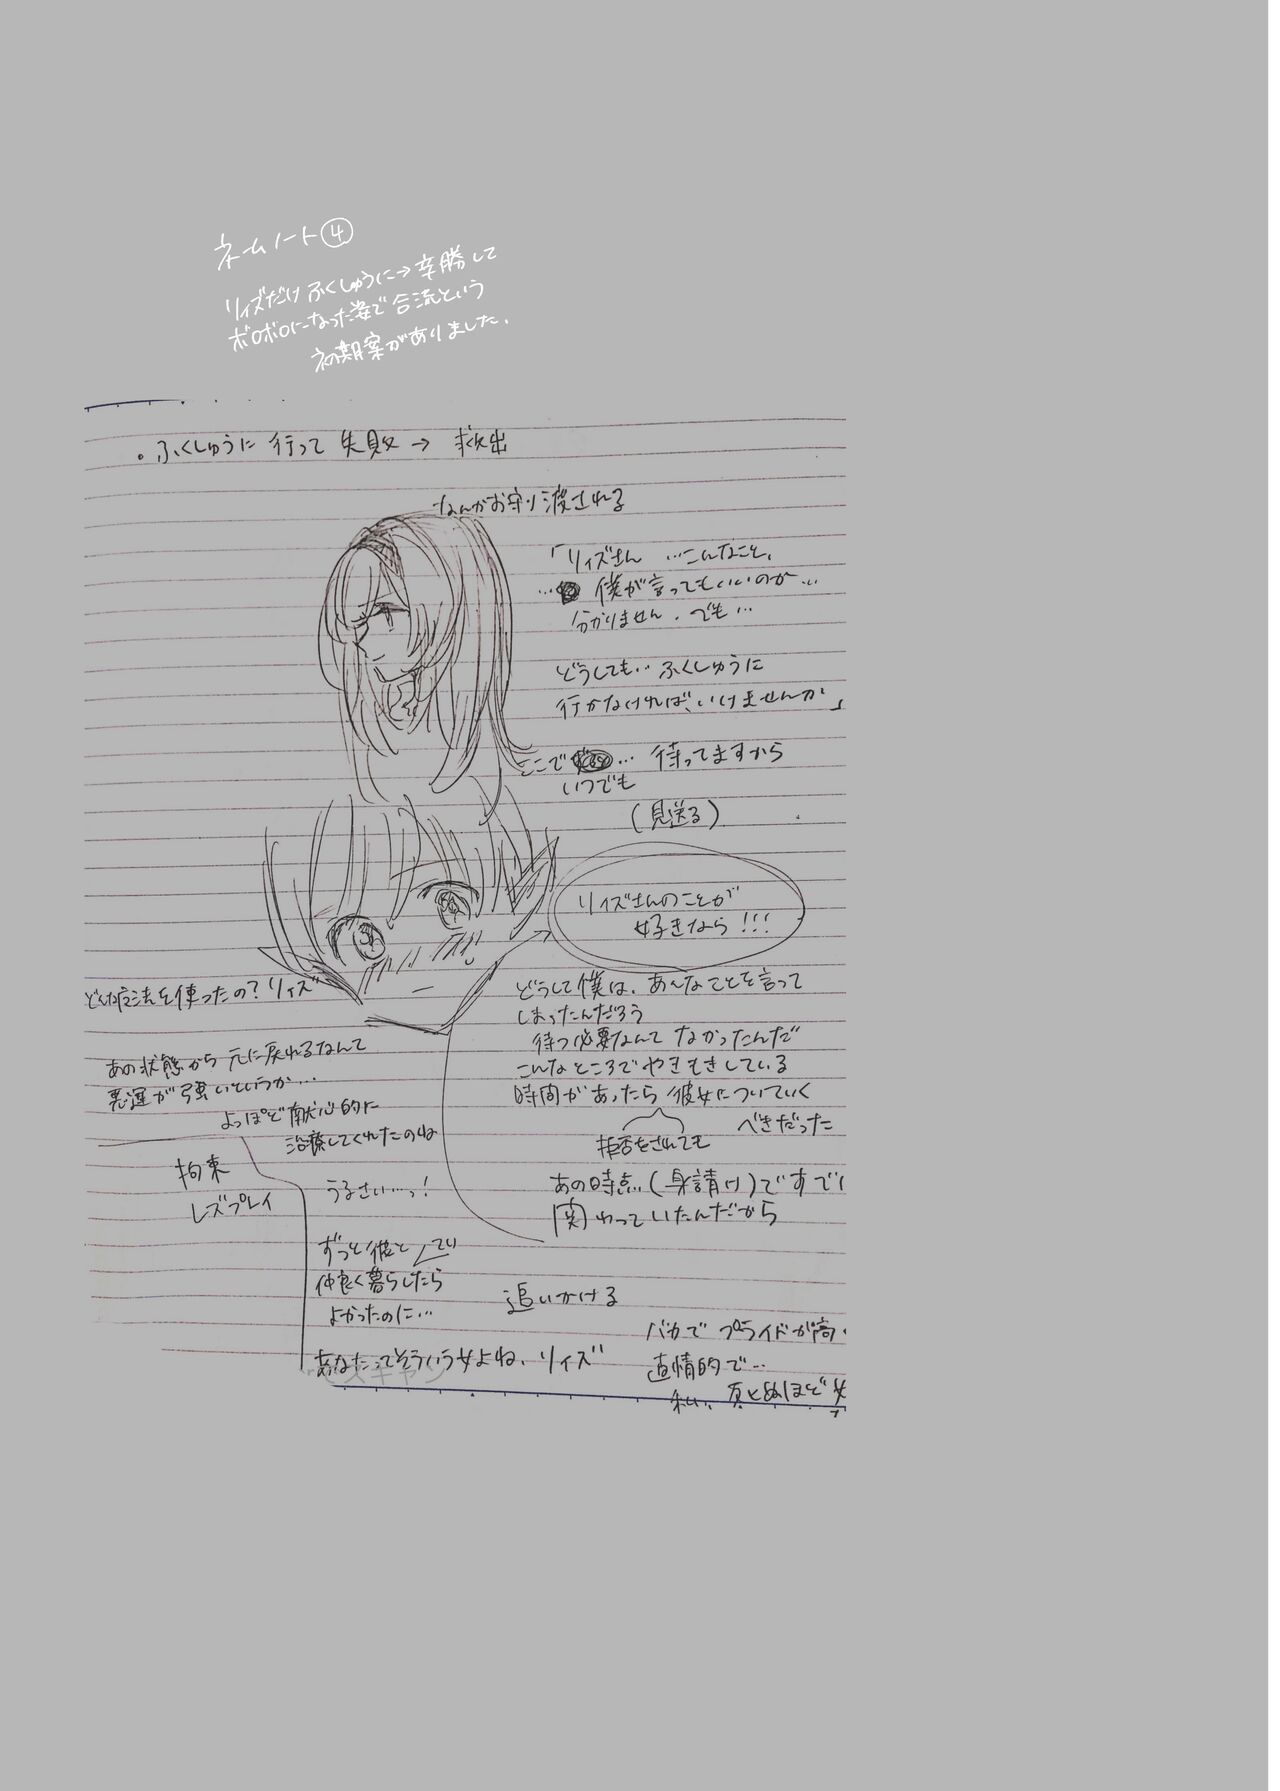 ネームノート④
リィズだけふくしゅうに→辛勝して
ボロボロになった姿で合流という
初期案がありました.
。ふくしゅうに 行って 失敗 → 救出
なんかお守り渡される
「リィズさん …こんなこと、
… 僕が言ってもいいのか…
分かりません. でも…
どうしても… ふくしゅうに
行かなければ、いけませんか」
ここで … 待ってますから
いつでも
(見送る)
リィズさんのことが
好きなら!!!
どうして僕は、あんなことを言って
しまったんだろう
待つ必要なんて なかったんだ
こんなところでやきもきしている
時間があったら 彼女についていく
べきだった
拒否をされても
あの時点(身請け)ですでに
関わっていたんだから
追いかける
どんな療法を使ったの?リィズ
あの状態から 元に戻れるなんて
悪運が強いというか…
よっぽど献心的に
治療してくれたのね
うるさい…っ!
拘束
レズプレイ
ずっと彼と
仲良く暮らしてたら
よかったのに…
あなたってそういう女よね、リィズ
バカで プライドが高
直情的で…